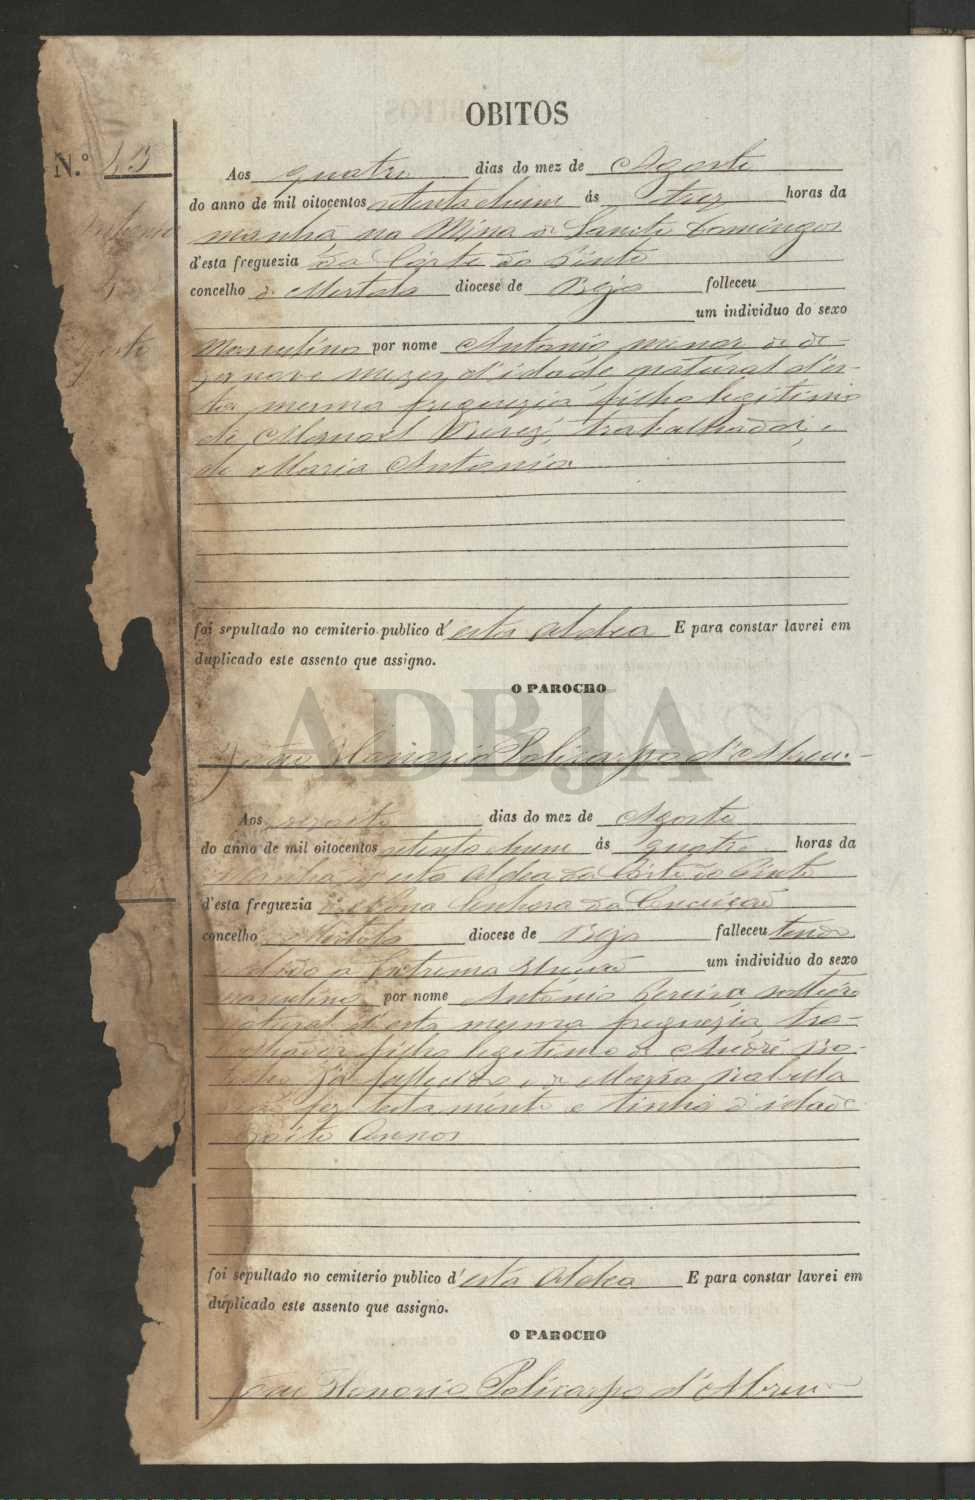 OBITOS
N.º 43
Aos quatro dias do mez de Agosto
do anno de mil oitocentos setenta e hum ás trez horas da
manhã na Mina de Sancto Domingos
d'esta freguezia da Côrte do Pinto
concelho de Mertola diocese de Beja folleceu
um individuo do sexo
Masculino por nome Antonio menor de de-
zanove mezes d'idade natural d'es-
ta mesma freguezia filho legitimo
de Manoel trabalhador, e
de Maria Antonia
foi sepultado no cemiterio publico d'esta Aldea E para constar lavrei em
duplicado este assento que assigno.
O PAROCHO
ADBJA
João Honorio Policarpo d'Abreu.
Aos dezoito dias do mez de Agosto
do anno de mil oitocentos setenta e hum ás quatro horas da
Manhã n'esta Aldea da Côrte do Pinto
d'esta freguezia de Nossa Senhora da Conceicão
concelho Mertola diocese de Beja falleceu tendo
a Extrema Uncão um individuo do sexo
masculino por nome António Pereira solteiro
natural d'esta mesma freguezia, tra-
filho legitimo de André
já fallecido, e de Maria
não fez testamento e tinha d'idade
oito Annos
foi sepultado no cemiterio publico d'esta Aldea E para constar lavrei em
duplicado este assento que assigno.
O PAROCHO
João Honorio Policarpo d'Abreu